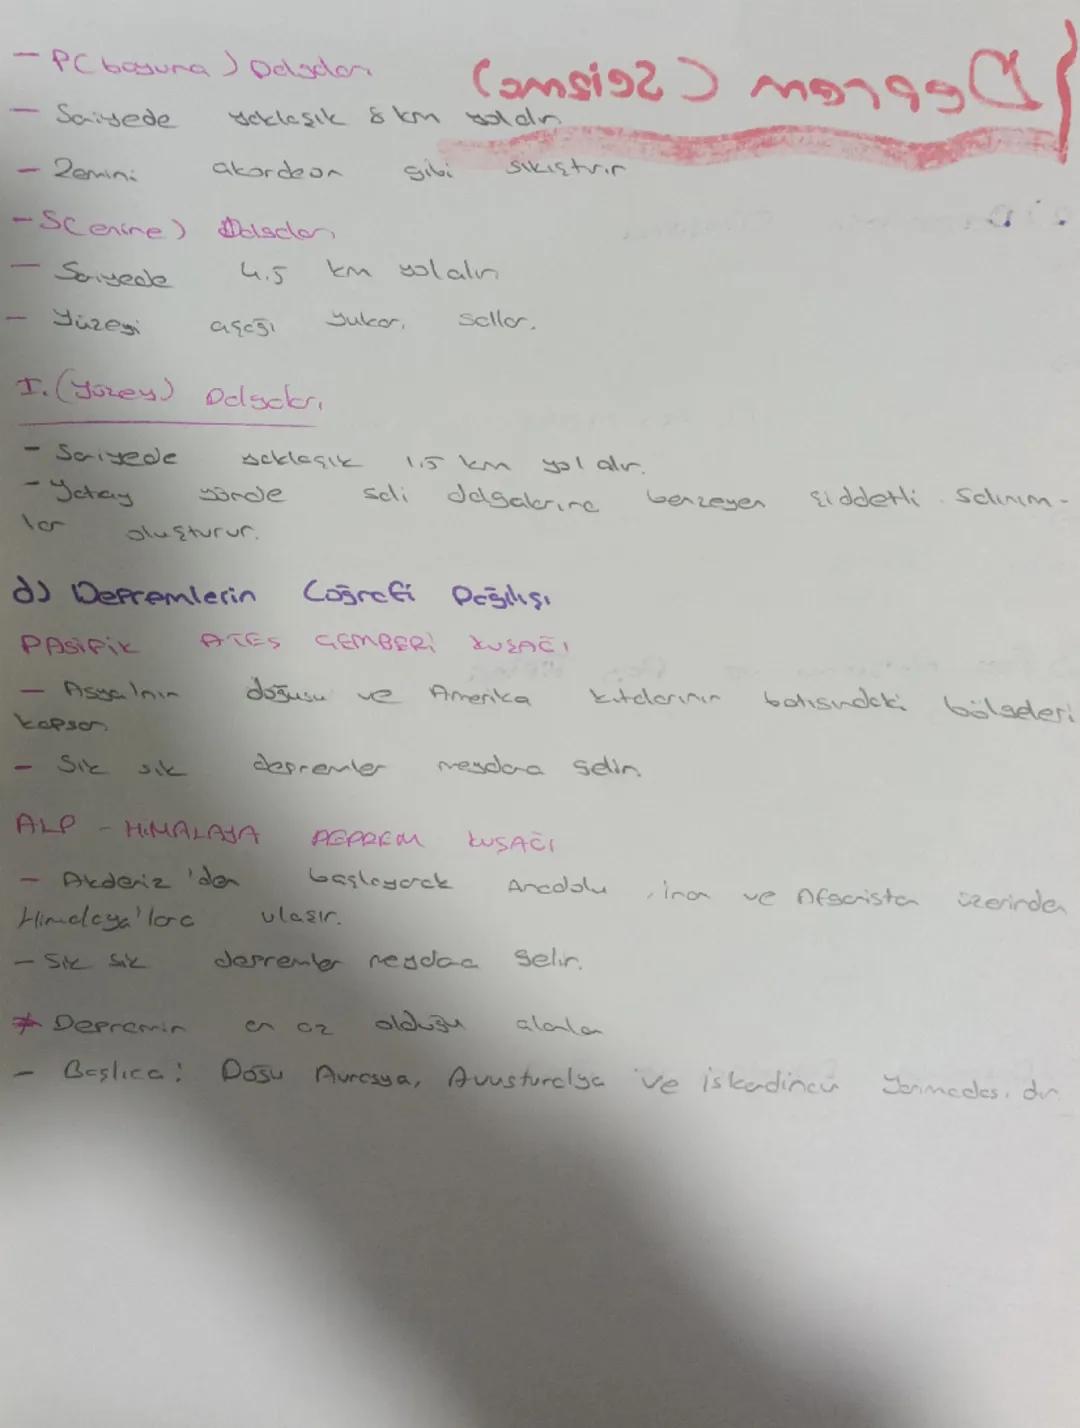 Deprem (Seisme)
- P(boyuna) Dalgaları
- Saniyede yaklaşık 8 km yol alır
- Zemini akordeon gibi sıkıştırır
- S(enine) Dalgaları
- Saniyede 4.5 km yol alır
- Yüzeyi aşağı yukarı sallar.
I. (Yüzey) Dalgaları
- Saniyede yaklaşık 1.5 km yol alır.
- Yatay yönde dalgalarına benzeyen şiddetli salınım-
lar oluşturur.
d) Depremlerin Coğrafi Dağılışı
PASİFİK ATEŞ ÇEMBERİ KUŞAĞI
- Asya'nın doğusu ve Amerika kıtalarının batısındaki bölgeleri
kapsar
- Sık sık depremler meydana gelir.
ALP - HİMALAYA DEPREM KUŞAĞI
- Akdeniz'den başlayarak Anadolu, İran ve Afganistan üzerinden
Himalaya'lara ulaşır.
- Sık sık depremler meydana gelir.
* Depremin en az olduğu alanlar
- Başlıca: Doğu Avrasya, Avusturalya ve İskandinav Yarımadası'dır